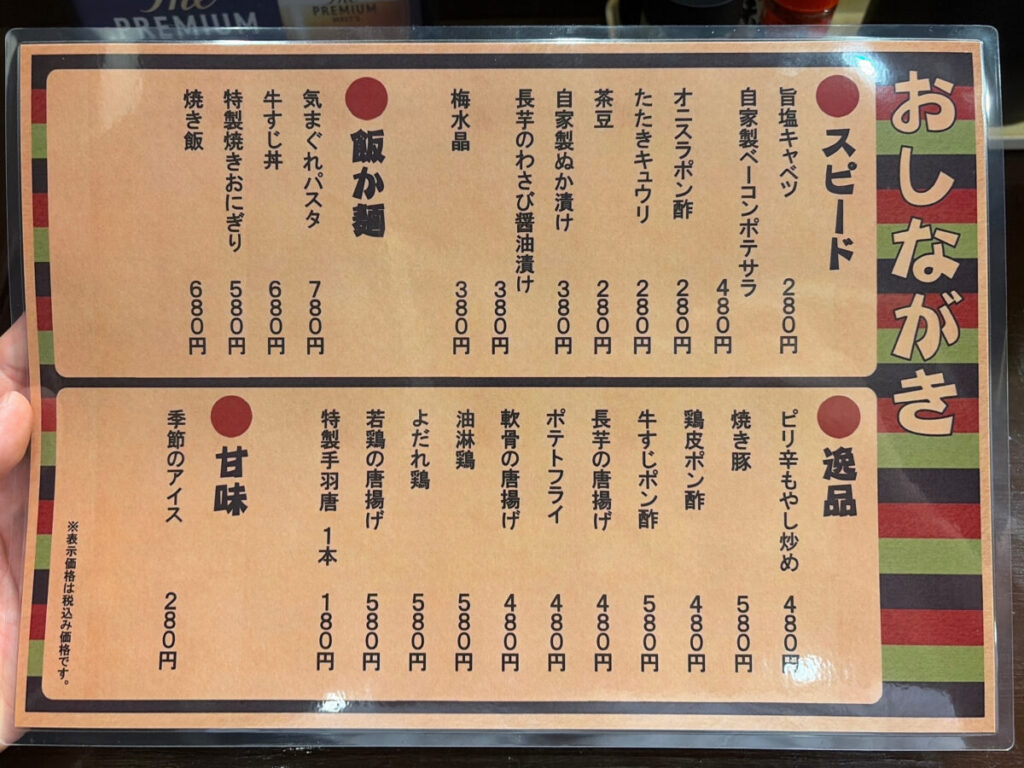 The
PREMIUM
The
PREMIUM
おしながき
スピード
旨塩キャベツ 280円
自家製ベーコンポテサラ 480円
オニスラポン酢 280円
たたきキュウリ 280円
茶豆 280円
自家製ぬか漬け 380円
長芋のわさび醤油漬け 380円
梅水晶 380円
飯か麺
気まぐれパスタ 780円
牛すじ丼 680円
特製焼きおにぎり 580円
焼き飯 680円
逸品
ピリ辛もやし炒め 480円
焼き豚 580円
鶏皮ポン酢 480円
牛すじポン酢 580円
長芋の唐揚げ 480円
ポテトフライ 480円
軟骨の唐揚げ 480円
油淋鶏 580円
よだれ鶏 580円
若鶏の唐揚げ 580円
特製手羽唐 1本 180円
甘味
季節のアイス 280円
※表示価格は税込み価格です。